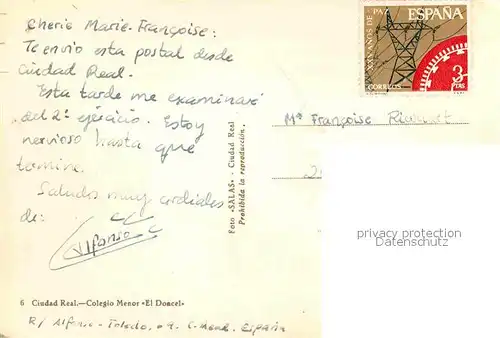 Cherie Marie-Françoise:
Te envio esta postal desde
Ciudad Real.
Esta tarde me examinaré
del 2º ejercicio. Estoy
nervioso hasta que
termine.
Saludos muy cordiales
de:
Alfonso
6 Ciudad Real.—Colegio Menor «El Doncel»
R/ Alfonso - Toledo, C. Real. España
Foto «SALAS» - Ciudad Real
Prohibida la reproducción.
XXV AÑOS DE PAZ
ESPAÑA
CORREOS
3 PTAS
Mª Françoise
privacy protection
Datenschutz